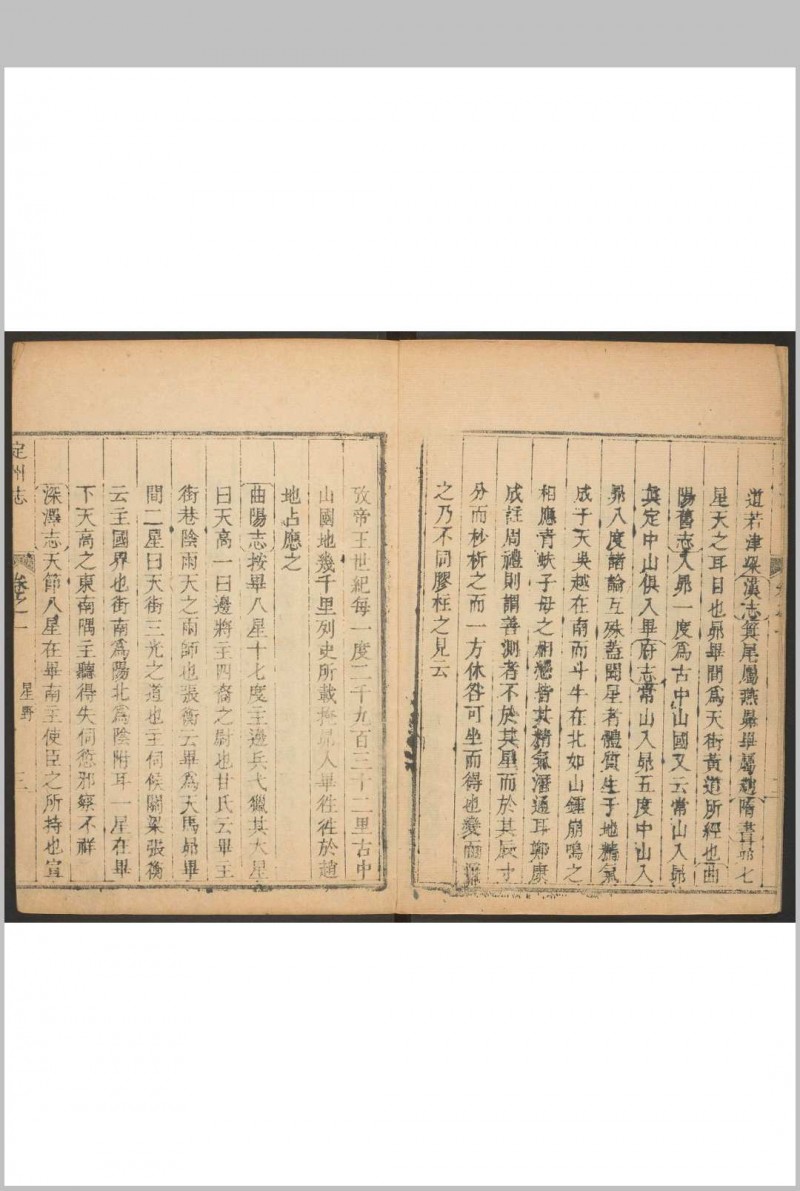 道若津梁漢志箕尾屬燕昴畢屬趙隋書昴七
星天之耳目也昴畢間爲天街黃道所經也曲
陽舊志入昴一度爲古中山國又云常山入昴
真定中山俱入畢府志常山入昴五度中山入
昴八度諸論互殊葢聞星者體質生于地精氣
成于天吳越在南而斗牛在北如山鍾崩鳴之
相應青蚨子母之相戀皆其精氣潛通耳鄭康
成註周禮則謂善測者不於其星而於其辰寸
分而杪析之而一方休咎可坐而得也變而
之乃不同膠柱之見云
攷帝王世紀每一度二千九百三十二里古中
山國地幾千里列史所載掩昴入畢徃徃於趙
地占應之
曲陽志按畢八星十七度主邊兵弋獵其大星
曰天高一曰邊將主四裔之尉也甘氏云畢主
街巷陰雨天之雨師也張衡云畢爲天馬昴畢
間二星曰天街三光之道也主伺候關梁張衡
云主國界也街南爲陽北爲陰附耳一星在畢
下天高之東南隅主聽得失伺愆邪察不祥
深澤志天節八星在畢南主使臣之所持也宣
定州志
卷之一
星野
三
二